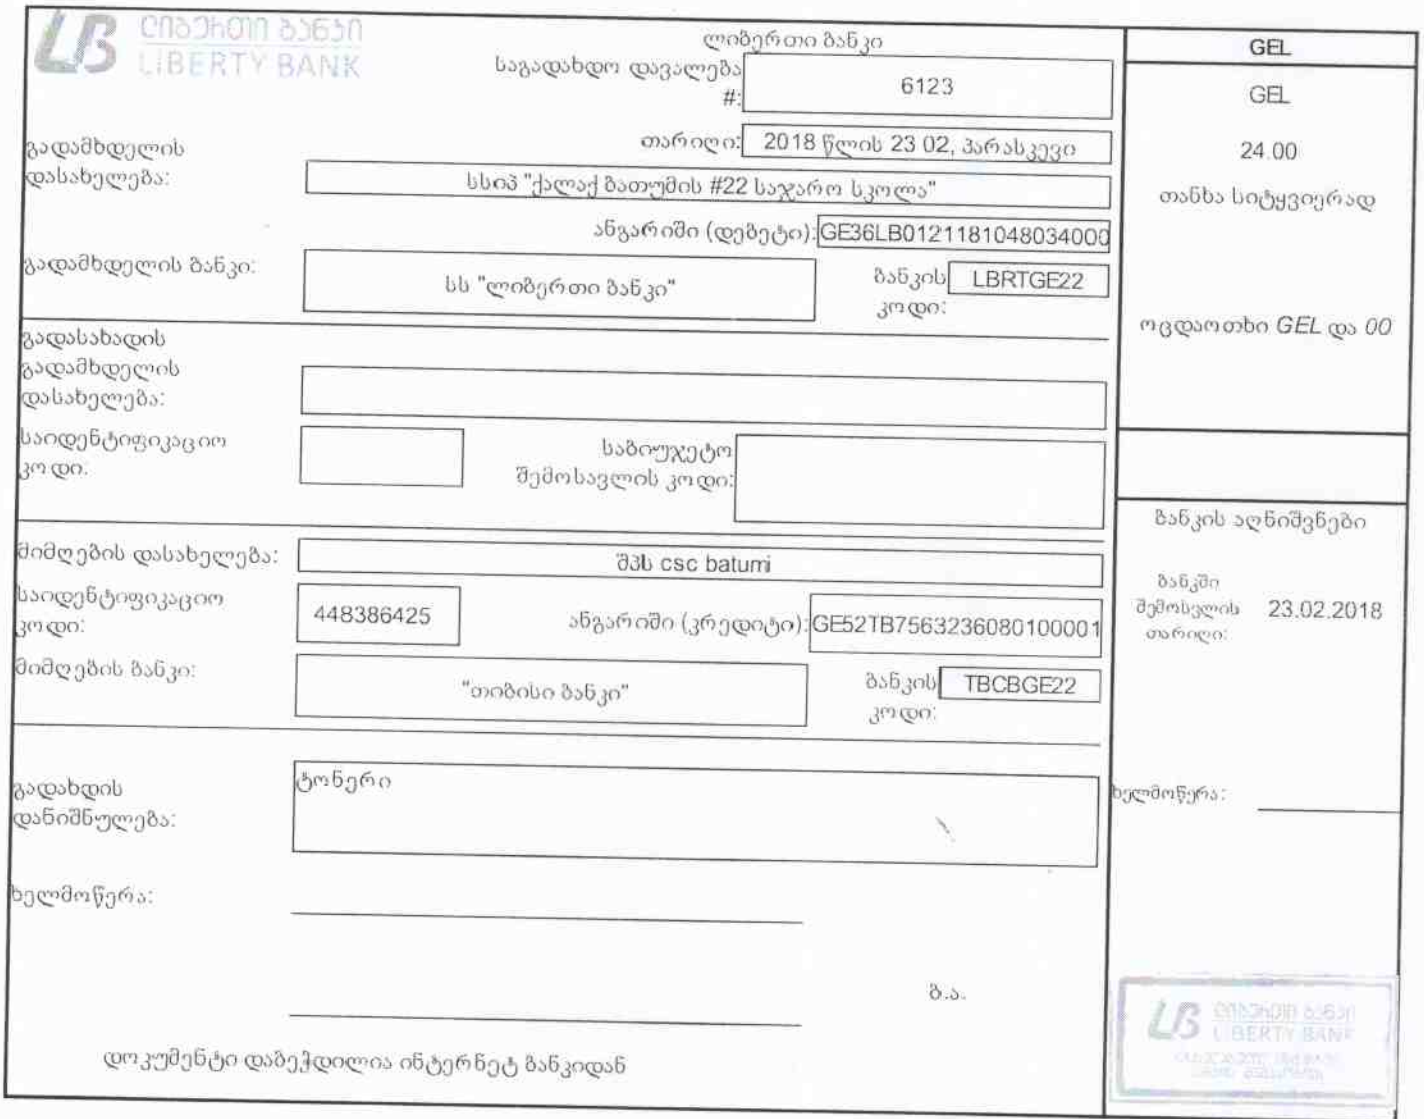 ლიბერთი ბანკი
LIBERTY BANK
ლიბერთი ბანკი
საგადახდო დავალება
#:
6123
თარიღი:
2018 წლის 23 02, პარასკევი
გადამხდელის
დასახელება:
სსიპ "ქალაქ ბათუმის #22 საჯარო სკოლა"
ანგარიში (დებეტი):
GE36LB0121181048034000
გადამხდელის ბანკი:
სს "ლიბერთი ბანკი"
ბანკის
კოდი:
LBRTGE22
გადასახადის
გადამხდელის
დასახელება:
საიდენტიფიკაციო
კოდი:
საბიუჯეტო
შემოსავლის კოდი:
მიმღების დასახელება:
შპს csc batumi
საიდენტიფიკაციო
კოდი:
448386425
ანგარიში (კრედიტი):
GE52TB7563236080100001
მიმღების ბანკი:
"თიბისი ბანკი"
ბანკის
კოდი:
TBCBGE22
გადახდის
დანიშნულება:
ტონერი
ხელმოწერა:
ბ.ა.
დოკუმენტი დაბეჭდილია ინტერნეტ ბანკიდან
GEL
GEL
24.00
თანხა სიტყვიერად
ოცდაოთხი GEL და 00
ბანკის აღნიშვნები
ბანკში
შემოსვლის
თარიღი:
23.02.2018
ხელმოწერა:
ლიბერთი ბანკი
LIBERTY BANK